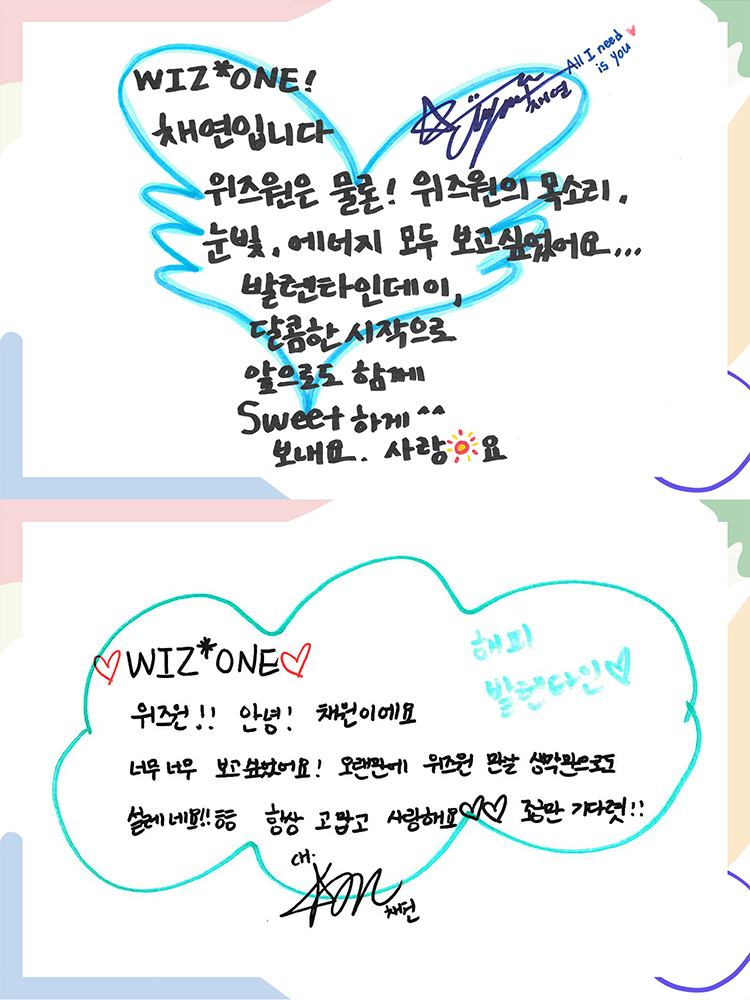 WIZ*ONE!
All I need
is you
채연
채연입니다
위즈원은 물론! 위즈원의 목소리,
눈빛, 에너지 모두 보고싶었어요...
발렌타인데이,
달콤한 시작으로
앞으로도 함께
Sweet 하게^^
보내요. 사랑요
해피
발렌타인♡
♡WIZ*ONE♡
위즈원!! 안녕! 채원이에요
너무너무 보고싶었어요! 오랜만에 위즈원 만날 생각만으로도
설레네요!! 항상 고맙고 사랑해요♡♡ 조금만 기다려!!
채원